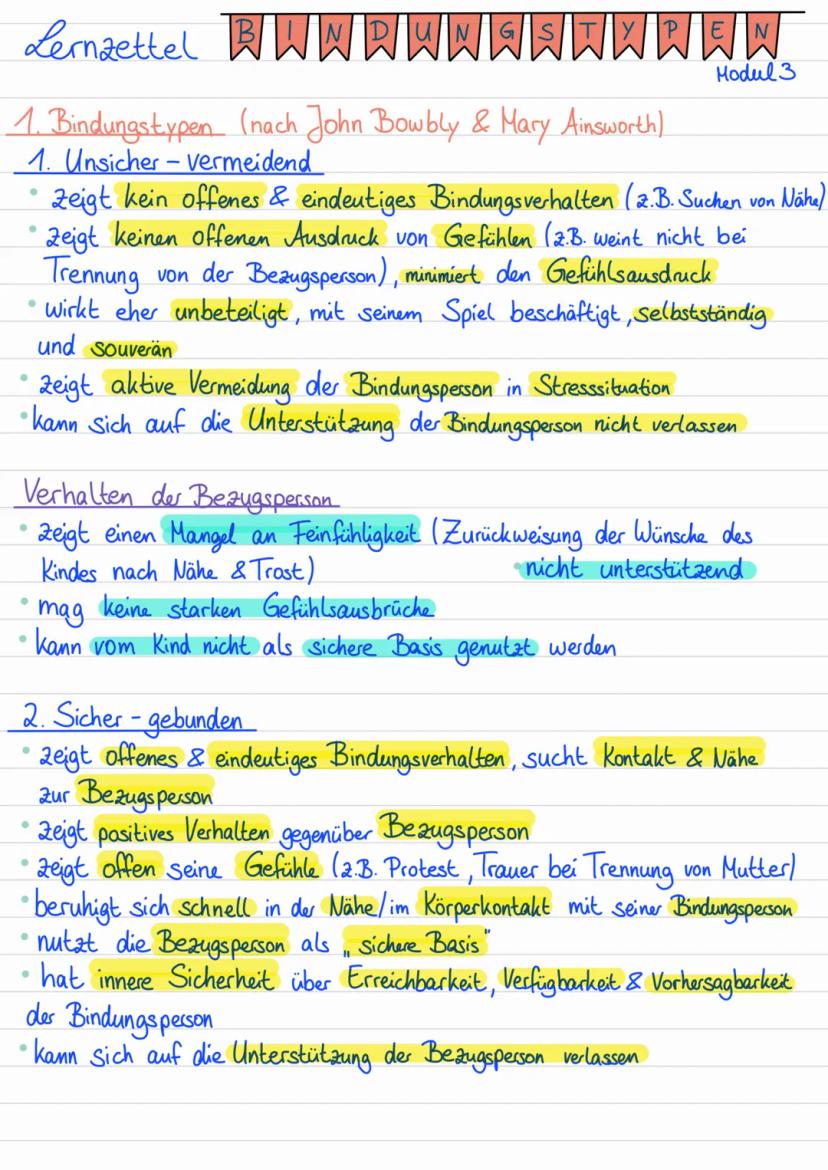 Lernzettel BINDUNGSTYPEN
Modul 3
1. Bindungstypen (nach John Bowbly & Mary Ainsworth)
1. Unsicher - vermeidend
• zeigt kein offenes & eindeutiges Bindungsverhalten (z.B. Suchen von Nähe)
• zeigt keinen offenen Ausdruck von Gefühlen (z.B. weint nicht bei
Trennung von der Bezugsperson), minimiert den Gefühlsausdruck
• wirkt eher unbeteiligt, mit seinem Spiel beschäftigt, selbstständig
und souverän
• zeigt aktive Vermeidung der Bindungsperson in Stresssituation
• kann sich auf die Unterstützung der Bindungsperson nicht verlassen
Verhalten der Bezugsperson
• zeigt einen Mangel an Feinfühligkeit (Zurückweisung der Wünsche des
Kindes nach Nähe & Trost) • nicht unterstützend
• mag keine starken Gefühlsausbrüche
• kann vom Kind nicht als sichere Basis genutzt werden
2. Sicher - gebunden
• zeigt offenes & eindeutiges Bindungsverhalten, sucht Kontakt & Nähe
zur Bezugsperson
• zeigt positives Verhalten gegenüber Bezugsperson
• zeigt offen seine Gefühle (z.B. Protest, Trauer bei Trennung von Mutter)
• beruhigt sich schnell in der Nähe/im Körperkontakt mit seiner Bindungsperson
• nutzt die Bezugsperson als „sichere Basis"
• hat innere Sicherheit über Erreichbarkeit, Verfügbarkeit & Vorhersagbarkeit
der Bindungsperson
• kann sich auf die Unterstützung der Bezugsperson verlassen